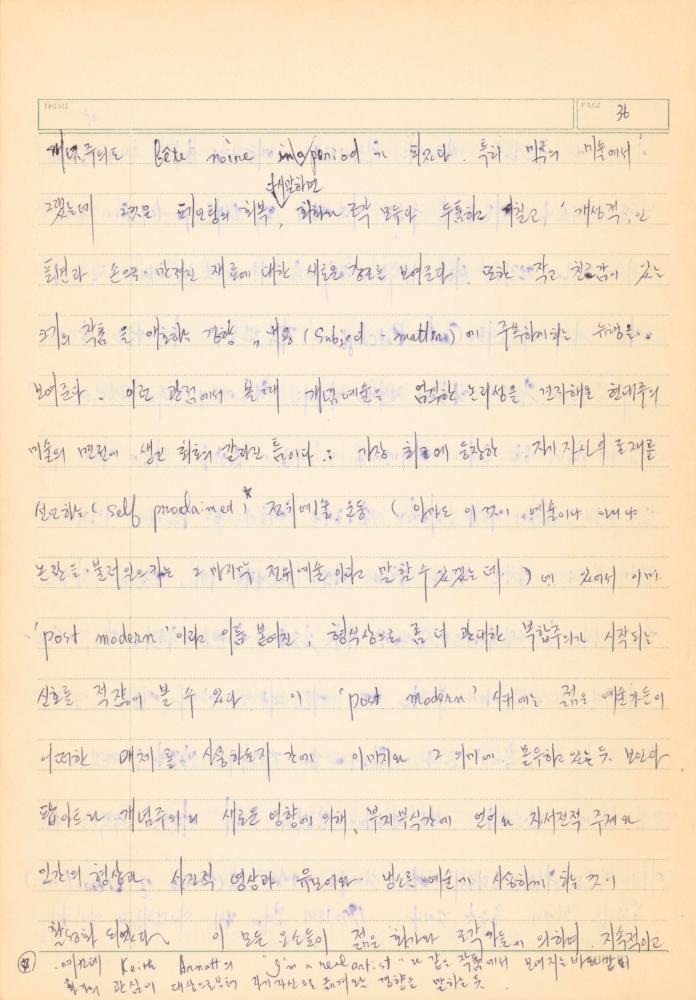 THEME
PAGE 36
개념주의도 Bête noire in a period 가 되었다. 특히 미국의 미술에서
다시말하면
그랬는데 그것은 페인팅의 회복, 회화와 조각 모두다 두툼하고 거칠고 '개성적'인
표면과 손으로 만져진 재료에 대한 새로운 경도를 보여준다. 또한 작고 친근감이 있는
크기의 작품을 애호하는 경향, 내용 (Subject-matter) 에 주목하게되는 유행을
보여준다. 이런 관점에서 볼때 개념예술은 엄격한 논리성을 견지해온 현대주의
미술의 면전에 생긴 최초의 갈라진 틈이다. 가장 최근에 등장한 자기 자신의 존재를
선언하는 (self proclaimed)* 전위예술 운동 (아마도 이것이 예술이냐 아니냐
논란을 불러일으키는 그 마지막 전위예술이라고 말할 수 있겠는데) 에 있어서 이미
'post modern' 이라고 이름 붙여진, 형식상으로 좀 더 관대한 복합주의가 시작되는
신호를 적잖이 볼 수 있다. 이 'post modern' 시대에는 젊은 예술가들이
어떠한 매체를 사용하든지 간에 이미지와 그 의미에 몰두하고 있는듯 보인다
팝아트와 개념주의의 새로운 영향에 의해, 부지부식간에 언어와 자서전적 주제와
인간의 형상과 사진적 영상과 유모어와 냉소를 예술에 사용하게 되는 것이
활성화 되었다. 이 모든 요소들이 젊은 화가와 조각가들에 의하여 지속적이고
* 예컨데 Keith Arnatt의 "I'm a real artist" 와 같은 작품에서 보여지는 바와 같이
관심이 대상으로부터 자기자신으로 옮겨오는 경향을 말하는 듯.